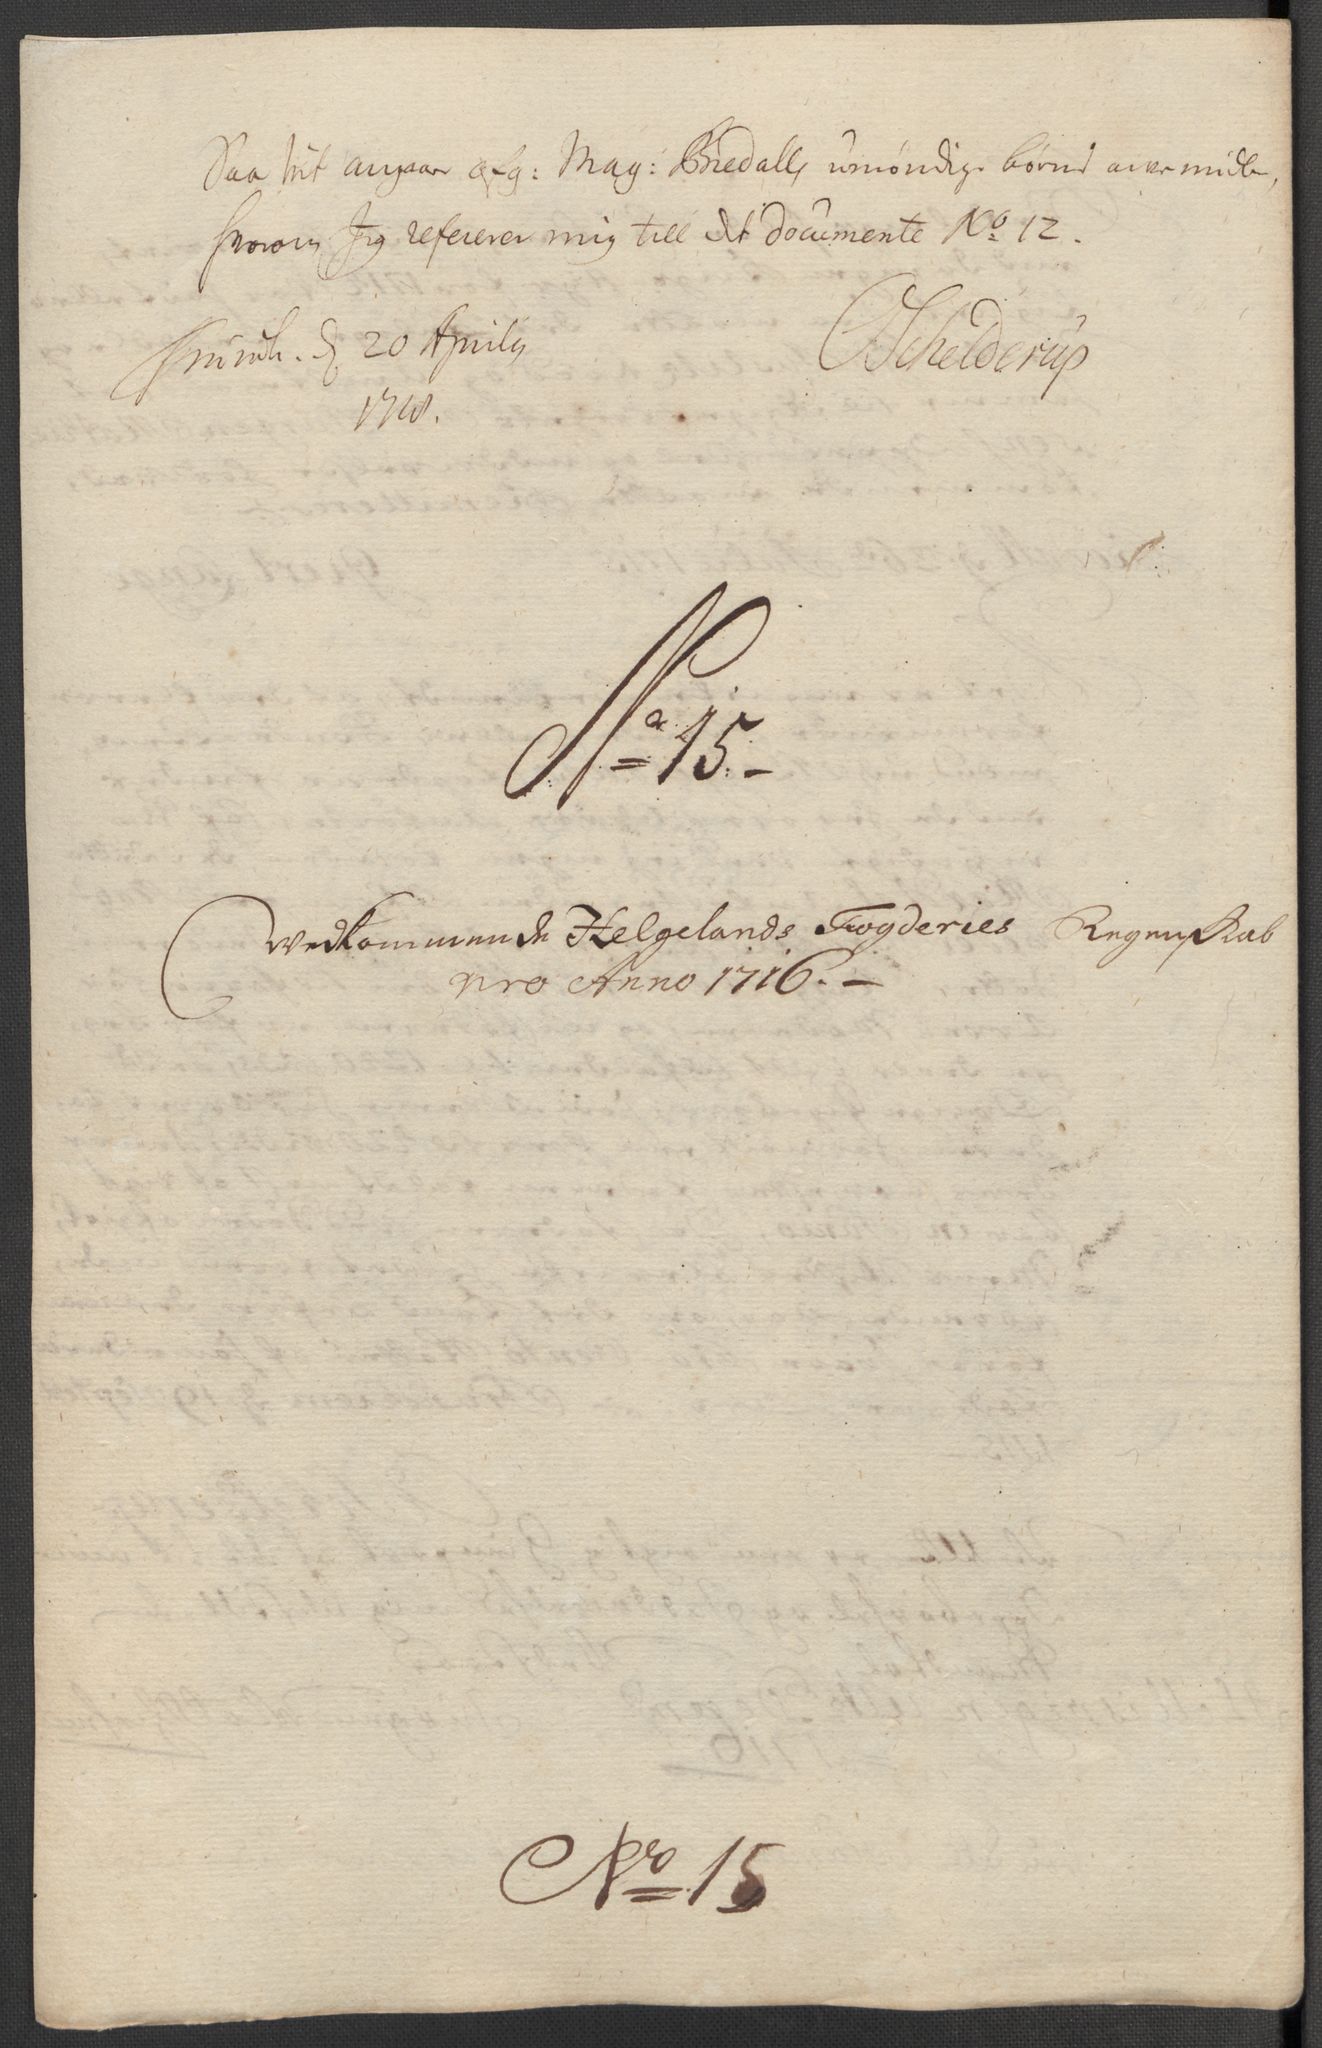 Saa vit angaar afg: Mag: Bredalls umöndige børns arve midler,
hvorom Jeg refererer mig till dt documente No 12.
Trundh. d 20 Aprilis
1718.
CSchelderup
No 15.
Vedkommende Helgelands Fogderies Regenskab
pro Anno 1716.
Nro 15